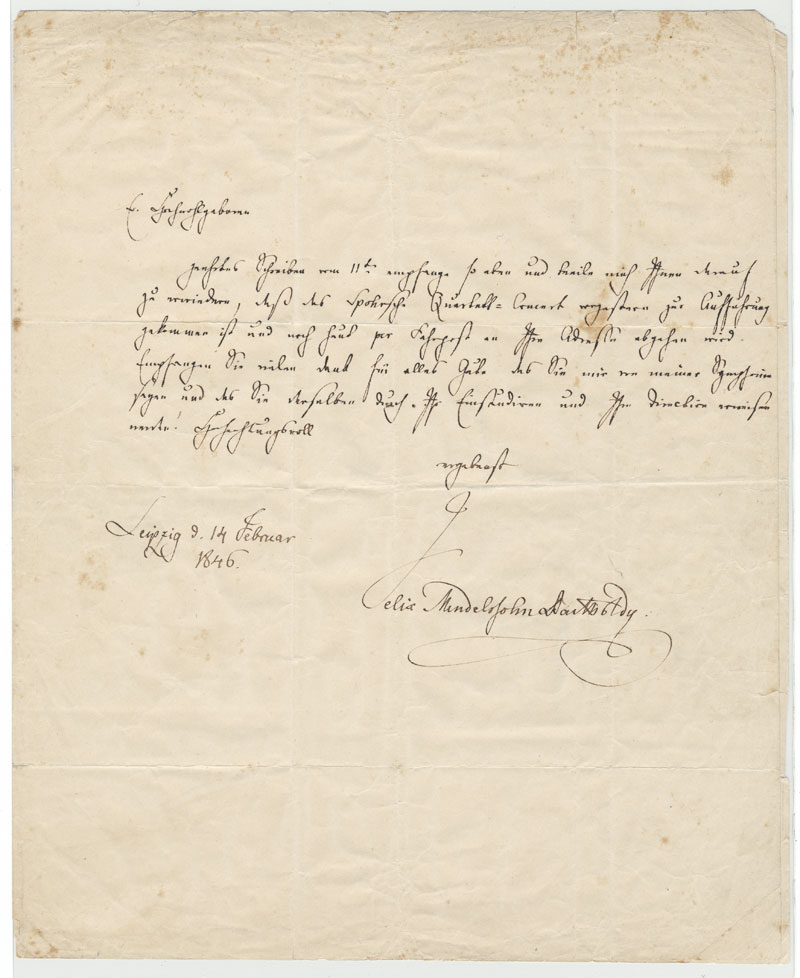 E. Hochwohlgeboren
geehrtes Schreiben vom 11ten empfange so eben und beeile mich Ihnen darauf
zu erwiedern, daß das Spohrsche Quartett-Concert vorgestern zur Aufführung
gekommen ist und noch heut per Fahrpost an Ihre Adresse abgehen wird.
Empfangen Sie vielen Dank für alles Gute das Sie mir von meiner Symphonie
sagen und das Sie derselben durch Ihr Einstudiren und Ihre Direction erwiesen
haben! Hochachtungsvoll
ergebenst
Leipzig d. 14 Februar
1846.
Felix Mendelssohn Bartholdy.